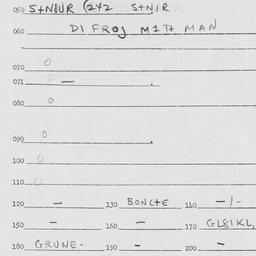 050 S+N8UR (2x2 S+N/R
060 DI FROJ M1TH MAN
070 0
071 —
080 0
090 0
100 0
110
120 — 130 BONC+E 140 —/-
150 — 160 — 170 GL8IKL,
180 GRUNE- 190 - 200 -